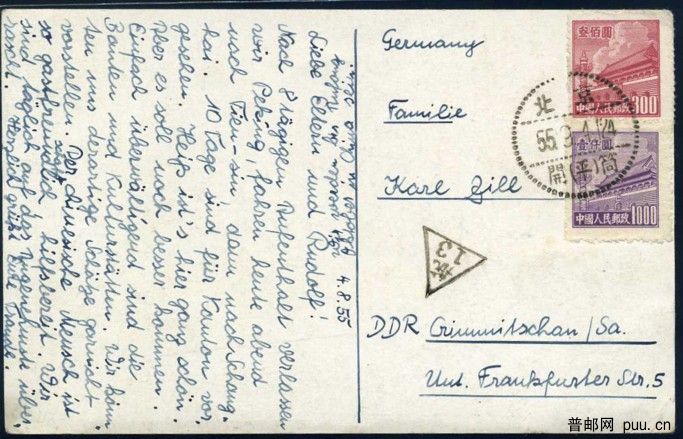 4.8.55
Liebe Eltern und Rudolf!
Nach 8 tägigem Aufenthalt verlassen
wir Peking, fahren heute abend
nach Tien-sin dann nach Schang-
hai. 10 Tage sind für Kanton vor-
gesehen. Heiß ist's hier ganz schön.
Aber es soll noch besser kommen.
Einfach überwältigend sind die
Bauten und Kulturstätten. Wir könn-
ten uns derartige Schätze garnicht
vorstellen. Der chinesische Mensch ist
so gastfreundlich und hilfsbereit. Wir
sind täglich auf das Angenehmste über-
rascht. Herzlich grüßt Eure
Germany
Familie
Karl Zill
DDR Crimmitschau/Sa.
Unt. Frankfurter Str. 5
叁佰圆
中國人民郵政
300
壹仟圆
中國人民郵政
1000
北京
55.9.4.24
13
普邮网 puu.cn